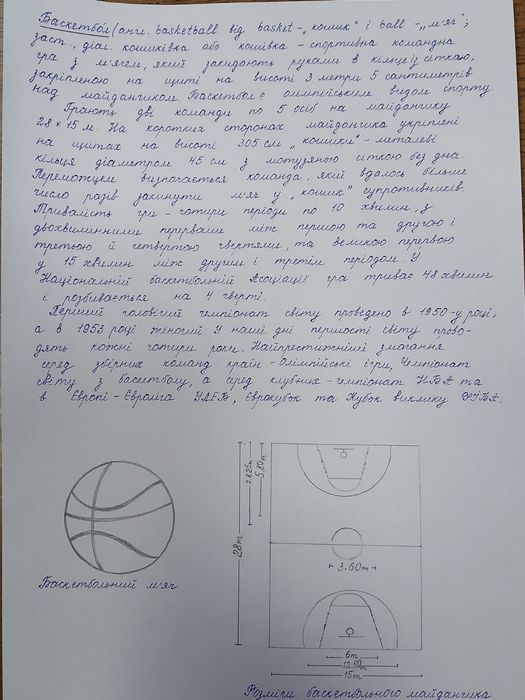 Баскетбо́л (англ. basketball від basket-„кошик" і ball -„м'яч";
заст., діал. кошиківка або кошівка - спортивна командна
гра з м'ячем, який закидають руками в кільце із сіткою,
закріпленою на щиті на висоті 3 метри 5 сантиметрів
над майданчиком. Баскетбол є олімпійським видом спорту.
Грають дві команди по 5 осіб на майданчику
28×15 м. На коротких сторонах майданчика укріплені
на щитах на висоті 305 см „кошики" - металеві
кільця діаметром 45 см з мотузяною сіткою без дна.
Переможцем визнається команда, якій вдалось більше
число разів закинути м'яч у „кошик" супротивників.
Тривалість гри - чотири періоди по 10 хвилин, з
двохвилинними перервами між першою та другою і
третьою й четвертою чвертями, та великою перервою
у 15 хвилин між другим і третім періодом. У
Національній баскетбольній Асоціації гра триває 48 хвилин
і розбивається на 4 чверті.
Перший чоловічий чемпіонат світу проведено в 1950-у році,
а в 1953 році жіночий. У наші дні першості світу прово-
дять кожні чотири роки. Найпрестижніші змагання
серед збірних команд країн - Олімпійські ігри, Чемпіонат
світу з баскетболу, а серед клубних - чемпіонат НБА та
в Європі - Євроліга УЛЕБ, Єврокубок та Кубок виклику ФІБА.
7.825m
5.80m
28m
3.60m
Баскетбольний м'яч
6m
12.50m
15m
Розміри баскетбольного майданчика